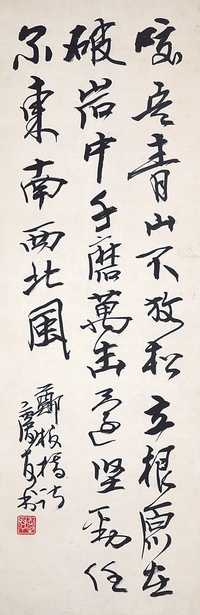 咬定青山不放松立根原在
破岩中千磨萬击還坚劲任
尔東南西北風
鄭板橋詩
书